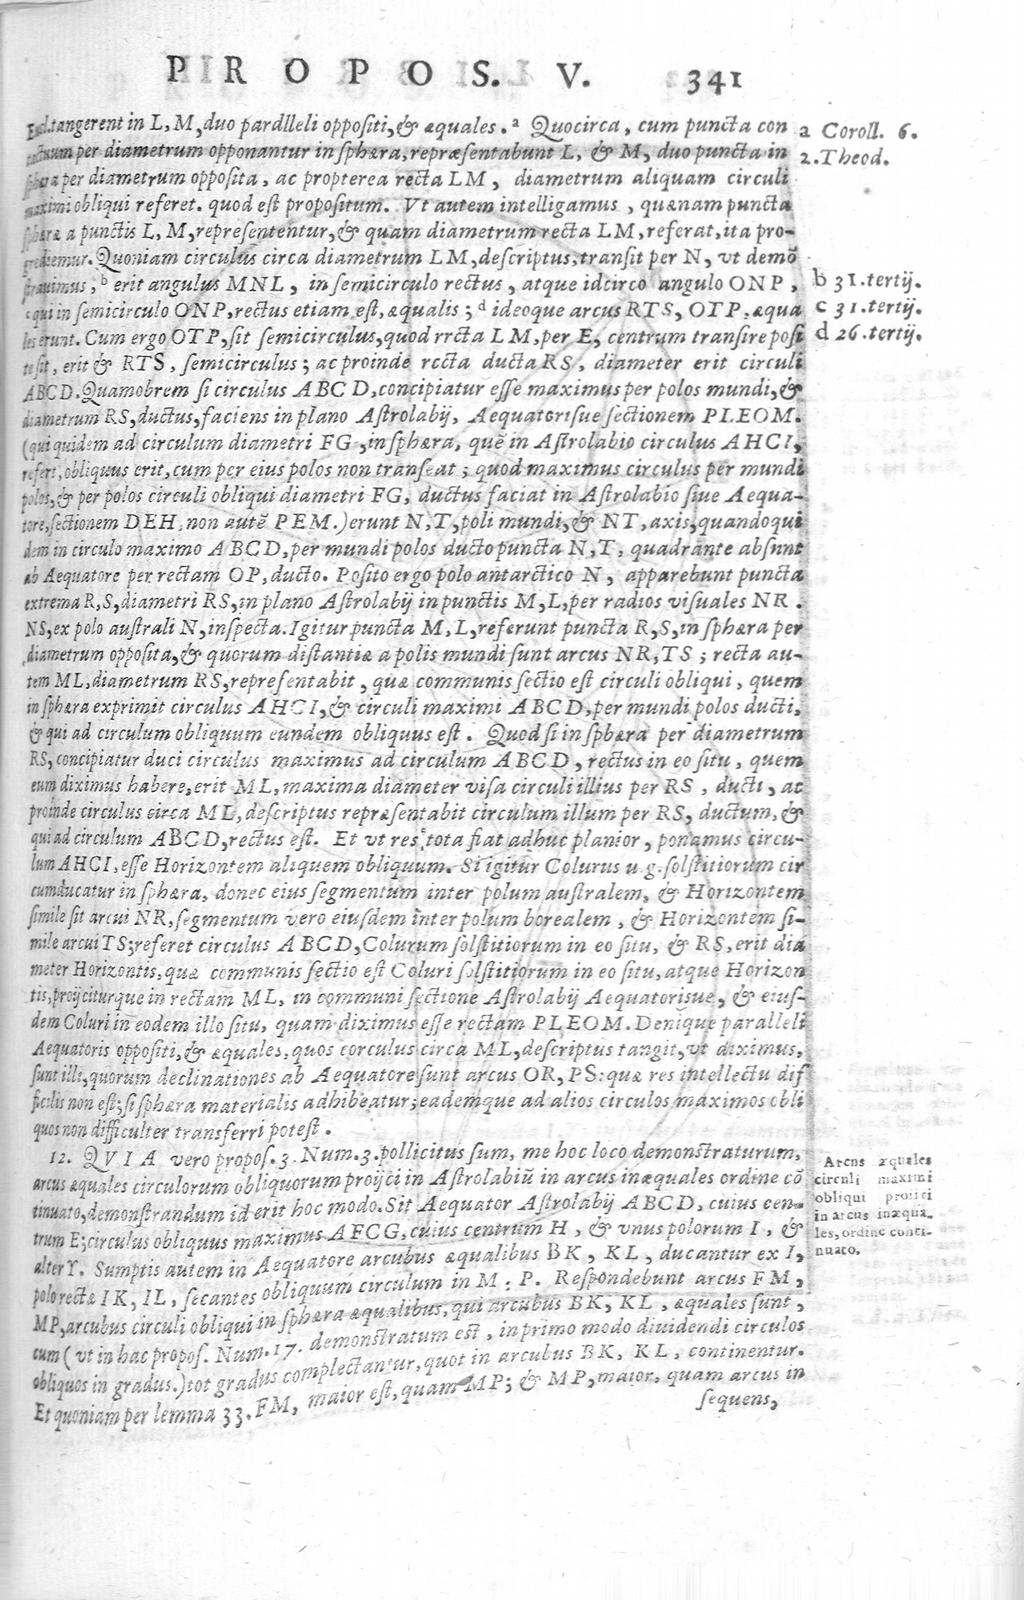 PROPOS. V. 341
tangerent in L, M, duo paralleli oppositi, & æquales. a Quocirca, cum puncta con
tactuum per diametrum opponantur in sphæra, repræsentabunt L, & M, duo puncta in
sphæra per diametrum opposita, ac propterea recta LM, diametrum aliquam circuli
maximi obliqui referet. quod est propositum. Vt autem intelligamus, quænam puncta
sphæræ a punctis L, M, represententur, & quam diametrum recta LM, referat, ita pro-
grediemur. Quoniam circulus circa diametrum LM, descriptus, transit per N, vt demõ
strauimus, b erit angulus MNL, in semicirculo rectus, atque idcirco angulo ONP,
c qui in semicirculo ONP, rectus etiam est, æqualis; d ideoque arcus RTS, OTP, æqua
les erunt. Cum ergo OTP, sit semicirculus, quod rrcta LM, per E, centrum transire posi
ta sit, erit & RTS, semicirculus; ac proinde recta ducta RS, diameter erit circuli
ABCD. Quamobrem si circulus ABCD, concipiatur esse maximus per polos mundi, &
diametrum RS, ductus, faciens in plano Astrolabij, Aequatorisue sectionem PLEOM.
(qui quidem ad circulum diametri FG, in sphæra, quẽ in Astrolabio circulus AHCI,
refert, obliquus erit, cum per eius polos non transeat; quod maximus circulus per mundi
polos, & per polos circuli obliqui diametri FG, ductus faciat in Astrolabio siue Aequa-
tore, sectionem DEH, non autẽ PEM.) erunt N, T, poli mundi, & NT, axis, quandoqui
dem in circulo maximo ABCD, per mundi polos ducto puncta N, T, quadrante absunt
ab Aequatore per rectam OP, ducto. Posito ergo polo antarctico N, apparebunt puncta
extrema R, S, diametri RS, in plano Astrolabij in punctis M, L, per radios visuales NR.
NS, ex polo australi N, inspecta. Igitur puncta M, L, referunt puncta R, S, in sphæra per
diametrum opposita, & quorum distantiæ a polis mundi sunt arcus NR, TS; recta au-
tem ML, diametrum RS, representabit, quæ communis sectio est circuli obliqui, quem
in sphæra exprimit circulus AHCI, & circuli maximi ABCD, per mundi polos ducti,
& qui ad circulum obliquum eundem obliquus est. Quod si in sphæra per diametrum
RS, concipiatur duci circulus maximus ad circulum ABCD, rectus in eo situ, quem
eum diximus habere, erit ML, maxima diameter visa circuli illius per RS, ducti, ac
proinde circulus circa ML, descriptus repræsentabit circulum illum per RS, ductum, &
qui ad circulum ABCD, rectus est. Et vt res tota fiat adhuc planior, ponamus circu-
lum AHCI, esse Horizontem aliquem obliquum. Si igitur Colurus u.g. solstitiorum cir
cumducatur in sphæra, donec eius segmentum inter polum australem, & Horizontem
simile sit arcui NR, segmentum vero eiusdem inter polum borealem, & Horizontem si-
mile arcui TS; referet circulus ABCD, Colurum solstitiorum in eo situ, & RS, erit dia
meter Horizontis, quæ communis sectio est Coluri solstitiorum in eo situ, atque Horizon
tis, proijciturque in rectam ML, in communi sectione Astrolabij Aequatorisue, & eius-
dem Coluri in eodem illo situ, quam diximus esse rectam PLEOM. Denique paralleli
Aequatoris oppositi, & æquales, quos corculus circa ML, descriptus tangit, vt diximus,
sunt illi, quorum declinationes ab Aequatore sunt arcus OR, PS: quæ res intellectu dif
ficilis non est; si sphæra materialis adhibeatur; eademque ad alios circulos maximos obli
quos non difficulter transferri potest.
12. QVIA vero propos. 3. Num. 3. pollicitus sum, me hoc loco demonstraturum,
arcus æquales circulorum obliquorum proijci in Astrolabiũ in arcus inæquales ordine cõ
tinuato, demonstrandum id erit hoc modo. Sit Aequator Astrolabij ABCD, cuius cen-
trum E; circulus obliquus maximus AFCG, cuius centrum H, & vnus polorum I, &
alter Y. Sumptis autem in Aequatore arcubus æqualibus BK, KL, ducantur ex I,
polo rectæ IK, IL, secantes obliquum circulum in M, P. Respondebunt arcus FM,
MP, arcubus circuli obliqui in sphæra æqualibus, qui arcubus BK, KL, æquales sunt,
cum (vt in hac propos. Num. 17. demonstratum est, in primo modo diuidendi circulos
obliquos in gradus.) tot gradus complectantur, quot in arcubus BK, KL, continentur.
Et quoniam per lemma 33. FM, maior est, quam MP; & MP, maior, quam arcus in
sequens,
a Coroll. 6.
2. Theod.
b 31. tertij.
c 31. tertij.
d 26. tertij.
Arcus æquales
circuli maximi
obliqui proiici
in arcus inæqua-
les, ordine conti-
nuato.